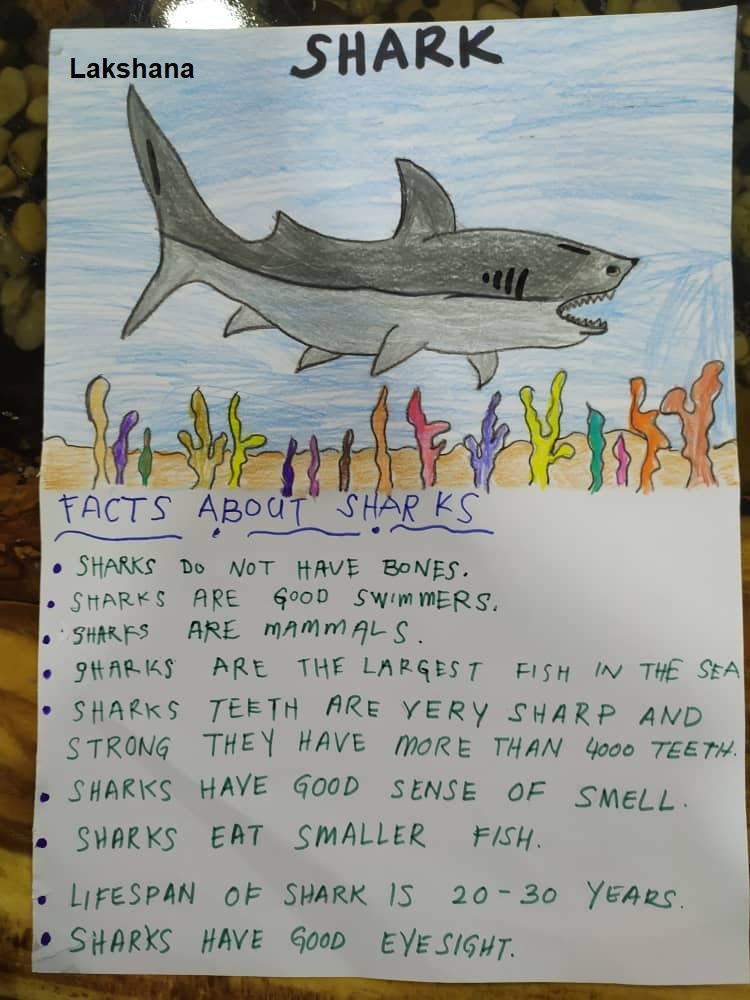 SHARK
Lakshana
FACTS ABOUT SHARKS
• SHARKS DO NOT HAVE BONES.
• SHARKS ARE GOOD SWIMMERS.
• SHARKS ARE MAMMALS.
• SHARKS ARE THE LARGEST FISH IN THE SEA
• SHARKS TEETH ARE VERY SHARP AND
STRONG THEY HAVE MORE THAN 4000 TEETH.
• SHARKS HAVE GOOD SENSE OF SMELL.
• SHARKS EAT SMALLER FISH.
• LIFESPAN OF SHARK IS 20-30 YEARS.
• SHARKS HAVE GOOD EYESIGHT.